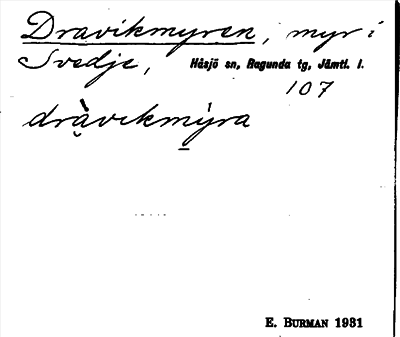 Dravikmyren, myr i
Svedje, Håsjö sn, Ragunda tg, Jämtl. l.
107
dràvikmýra
E. BURMAN 1931